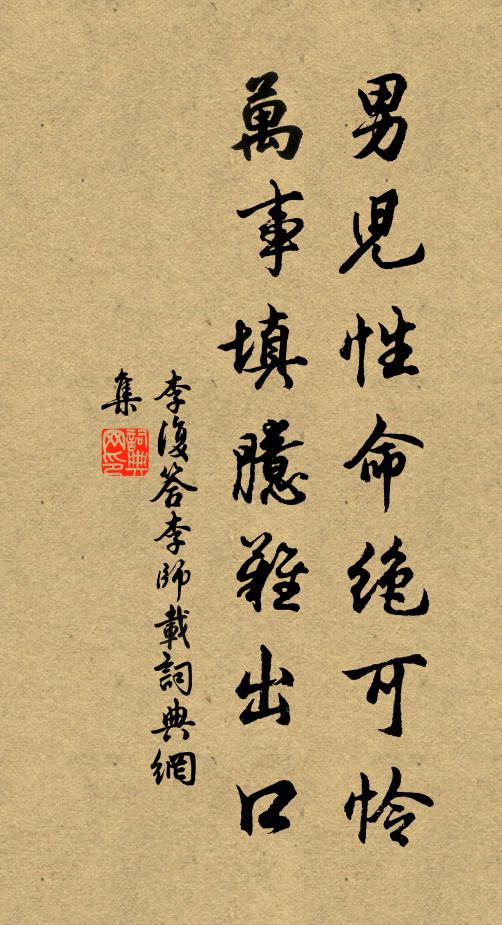 男兒性命絶可怜
萬事填臆難出口
李復答李師載詞典網
集
詞典網印